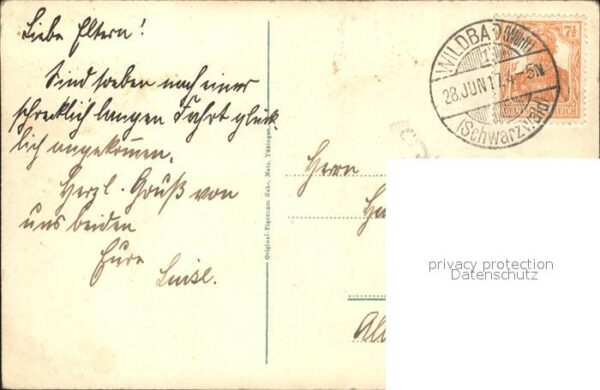 Liebe Eltern!
Sind soeben nach einer
schrecklich langen Fahrt glück-
lich angekommen.
Herzl. Gruß von
uns beiden
Eure
Luisl.
Original-Eigentum Gebr. Metz, Tübingen.
WILDBAD (Württ)
28.JUN 17.4-5N
(Schwarzwald)
7½
REICH
Herrn
privacy protection
Datenschutz